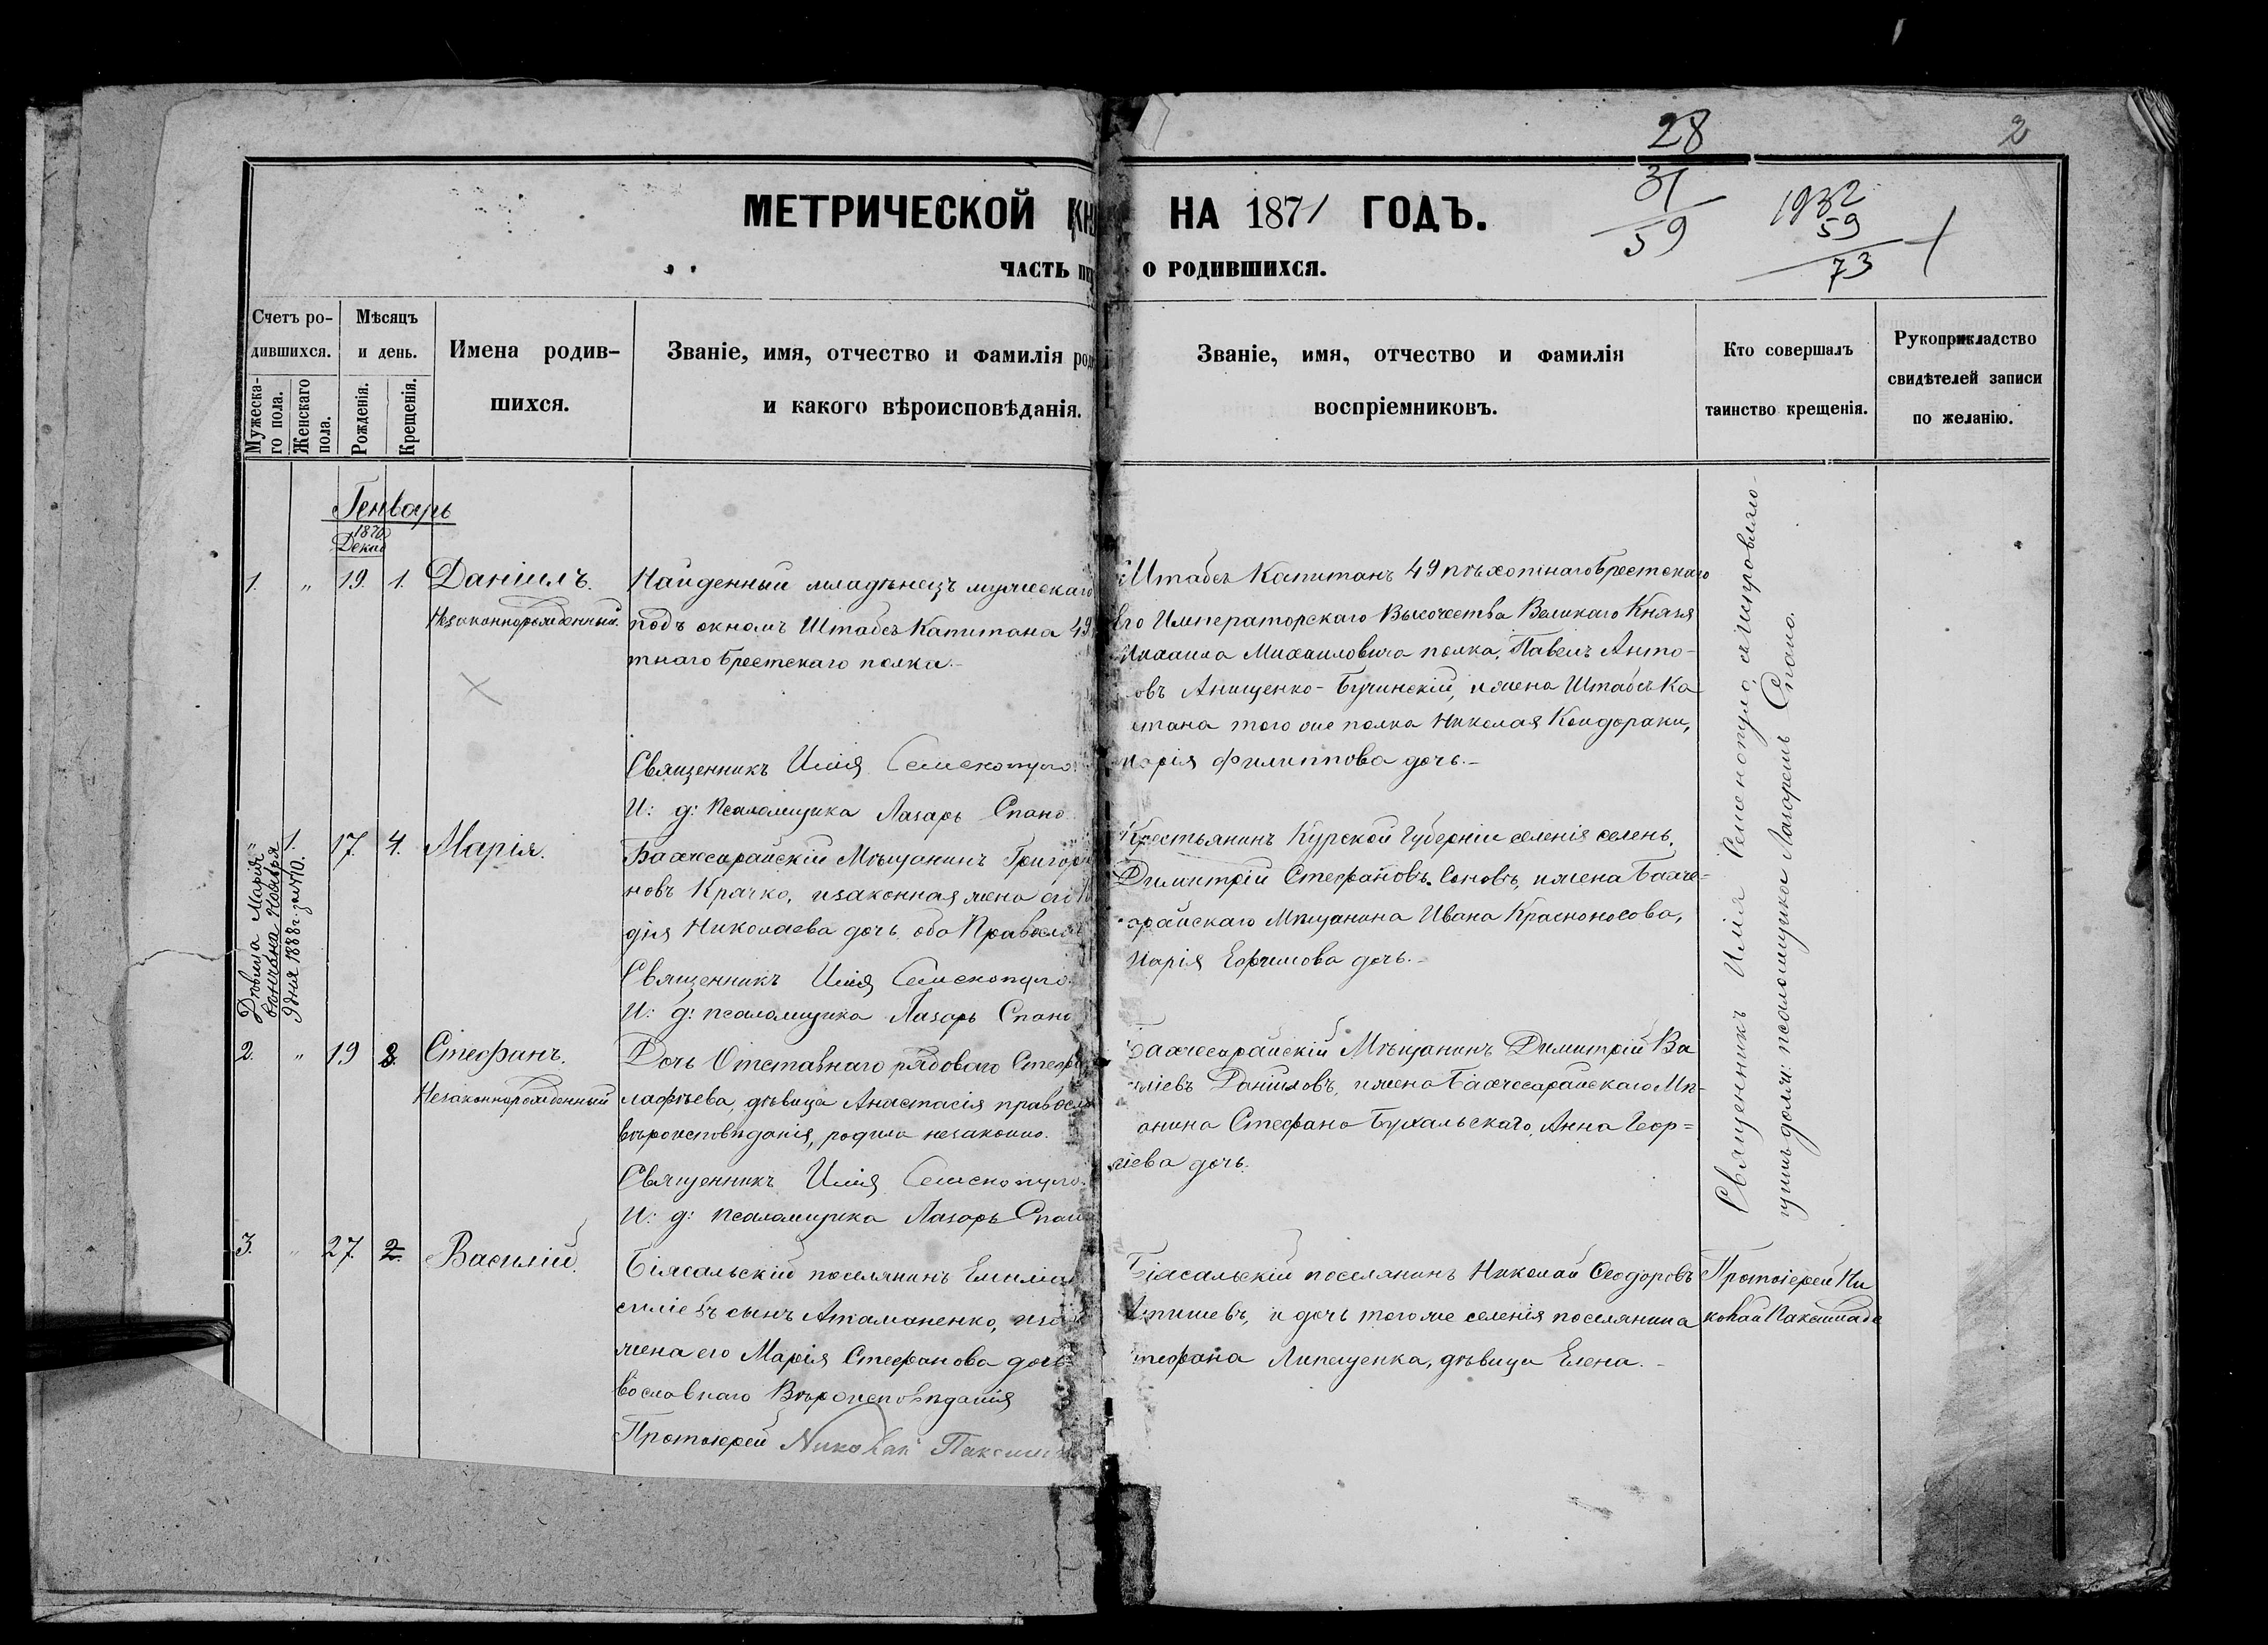 28
31
59
1932
59
73
2
МЕТРИЧЕСКОЙ КН НА 1871 ГОДЪ.
ЧАСТЬ ПЕР О РОДИВШИХСЯ.
Счетъ ро-
дившихся.
Мужеска-
го пола.
Женскаго
пола.
Мѣсяцъ
и день.
Рожденія.
Крещенія.
Имена родив-
шихся.
Званіе, имя, отчество и фамилія род
и какого вѣроисповѣданія.
Званіе, имя, отчество и фамилія
воспріемниковъ.
Кто совершалъ
таинство крещенія.
Рукоприкладство
свидѣтелей записи
по желанію.
Генварь
1870
Декаб
1. " 19. 1. Даніилъ.
Незаконнорожденный.
Найденный младѣнецъ мужескаго
подъ окномъ Штабсъ Капитана 49
тнаго Брестскаго полка.-
Священникъ Илія
И: д: Псаломщика Лазарь Спано
Штабсъ Капитанъ 49 пѣхотнаго Брестскаго
Его Императорскаго Высочества Великаго Князя
Михаила Михаиловича полка, Павелъ Анто-
овъ Анищенко-Бучинскій, и жена Штабсъ Ка-
питана того же полка Николая Кондораки,
Марія Филиппова дочь.-
" 1. 17. 4. Марія.
Дѣвица Марія
вѣнчана Ноября
дня 1888 г. за №10.
Бахчисарайскій Мѣщанинъ Григор
новъ Крачко, и законная жена его
дія Николаева дочь оба Правосл
Священникъ Илія
И: д: псаломщика Лазарь Спано
Крестьянинъ Курской Губерніи селенія
Димитрій Стефановъ и жена Бахче-
сарайскаго Мѣщанина Ивана Красноносова,
Марія Ефимова дочь.-
2. " 19 8. Стефанъ.
Незаконнорожденный
Дочь Отставнаго рядоваго Стеф
лафѣева, дѣвица Анастасія правосл
вѣроисповѣданія, родила незаконно.
Священникъ Илія
И: д: псаломщика Лазарь Спано
Бахчесарайскій Мѣщанинъ Димитрій Ва
силіевъ Даніиловъ, и жена Бахчесарайскаго Мѣ-
щанина Стефана Бухальскаго, Анна Геор=
гіева дочь.
Священникъ Илія
псаломщика Лазаремъ Спано.
3. " 27. 2. Василій.
Біясальскій поселянинъ
силіевъ сынъ Атаманенко, и
жена его Марія Стефанова дочь
вославнаго Вѣроисповѣданія
Протоіерей Николай
Біясальскій поселянинъ Николай Ѳеодоровъ
и дочь того же селенія поселянина
Стефана Липещенка, дѣвица Елена.-
Протоіерей Ни
колай